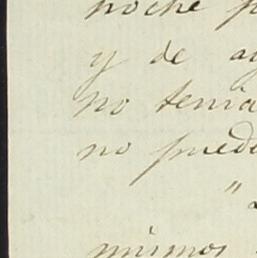 noche p
y de a
no tenia
no puede
"
mismos